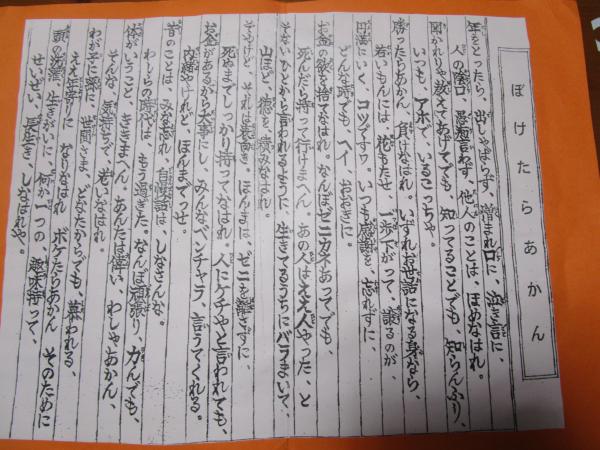 ぼけたらあかん
年をとったら、出しゃばらず、憎まれ口に、泣き言に、
人の陰口、愚痴言わず、他人のことは、ほめなはれ。
聞かれりゃ教えてあげてでも、知ってることでも、知らんふり、
いつも、アホで、いるこっちゃ。
勝ったらあかん、負けなはれ。いずれお世話になる身なら、
若いもんには、花もたせ、一歩下がって、譲るのが、
円満にいく、コツですワ。いつも感謝を、忘れずに、
どんな時でも、ヘイ、おおきに。
お金の欲を捨てなはれ。なんぼゼニカネあってでも、
死んだら持って行けまへん。あの人はええ人やった、と
そないひとから言われるように、生きてるうちにバラまいて、
山ほど、徳を、積みなはれ。
そやけど、それは表向き。ほんまは、ゼニを離さずに、
死ぬまでしっかり持ってなはれ。人にケチやと言われても、
お金があるから大事にし、みんなベンチャラ、言うてくれる。
内緒やけれど、ほんまでっせ。
昔のことは、みな忘れ、自慢話は、しなさんな。
わしらの時代は、もう過ぎた。なんぼ頑張り、力んでも、
体がいうこと、ききまへん。あんたは偉い、わしゃあかん、
そんな、気持ちで、おりなはれ。
わが子に孫に、世間さま、どなたからでも、慕われる、
ええ年寄りに、なりなはれ。ボケたらあかん そのために
頭の洗濯、生きがいに、何か一つの、趣味持って、
せいぜい、長生き、しなはれや。